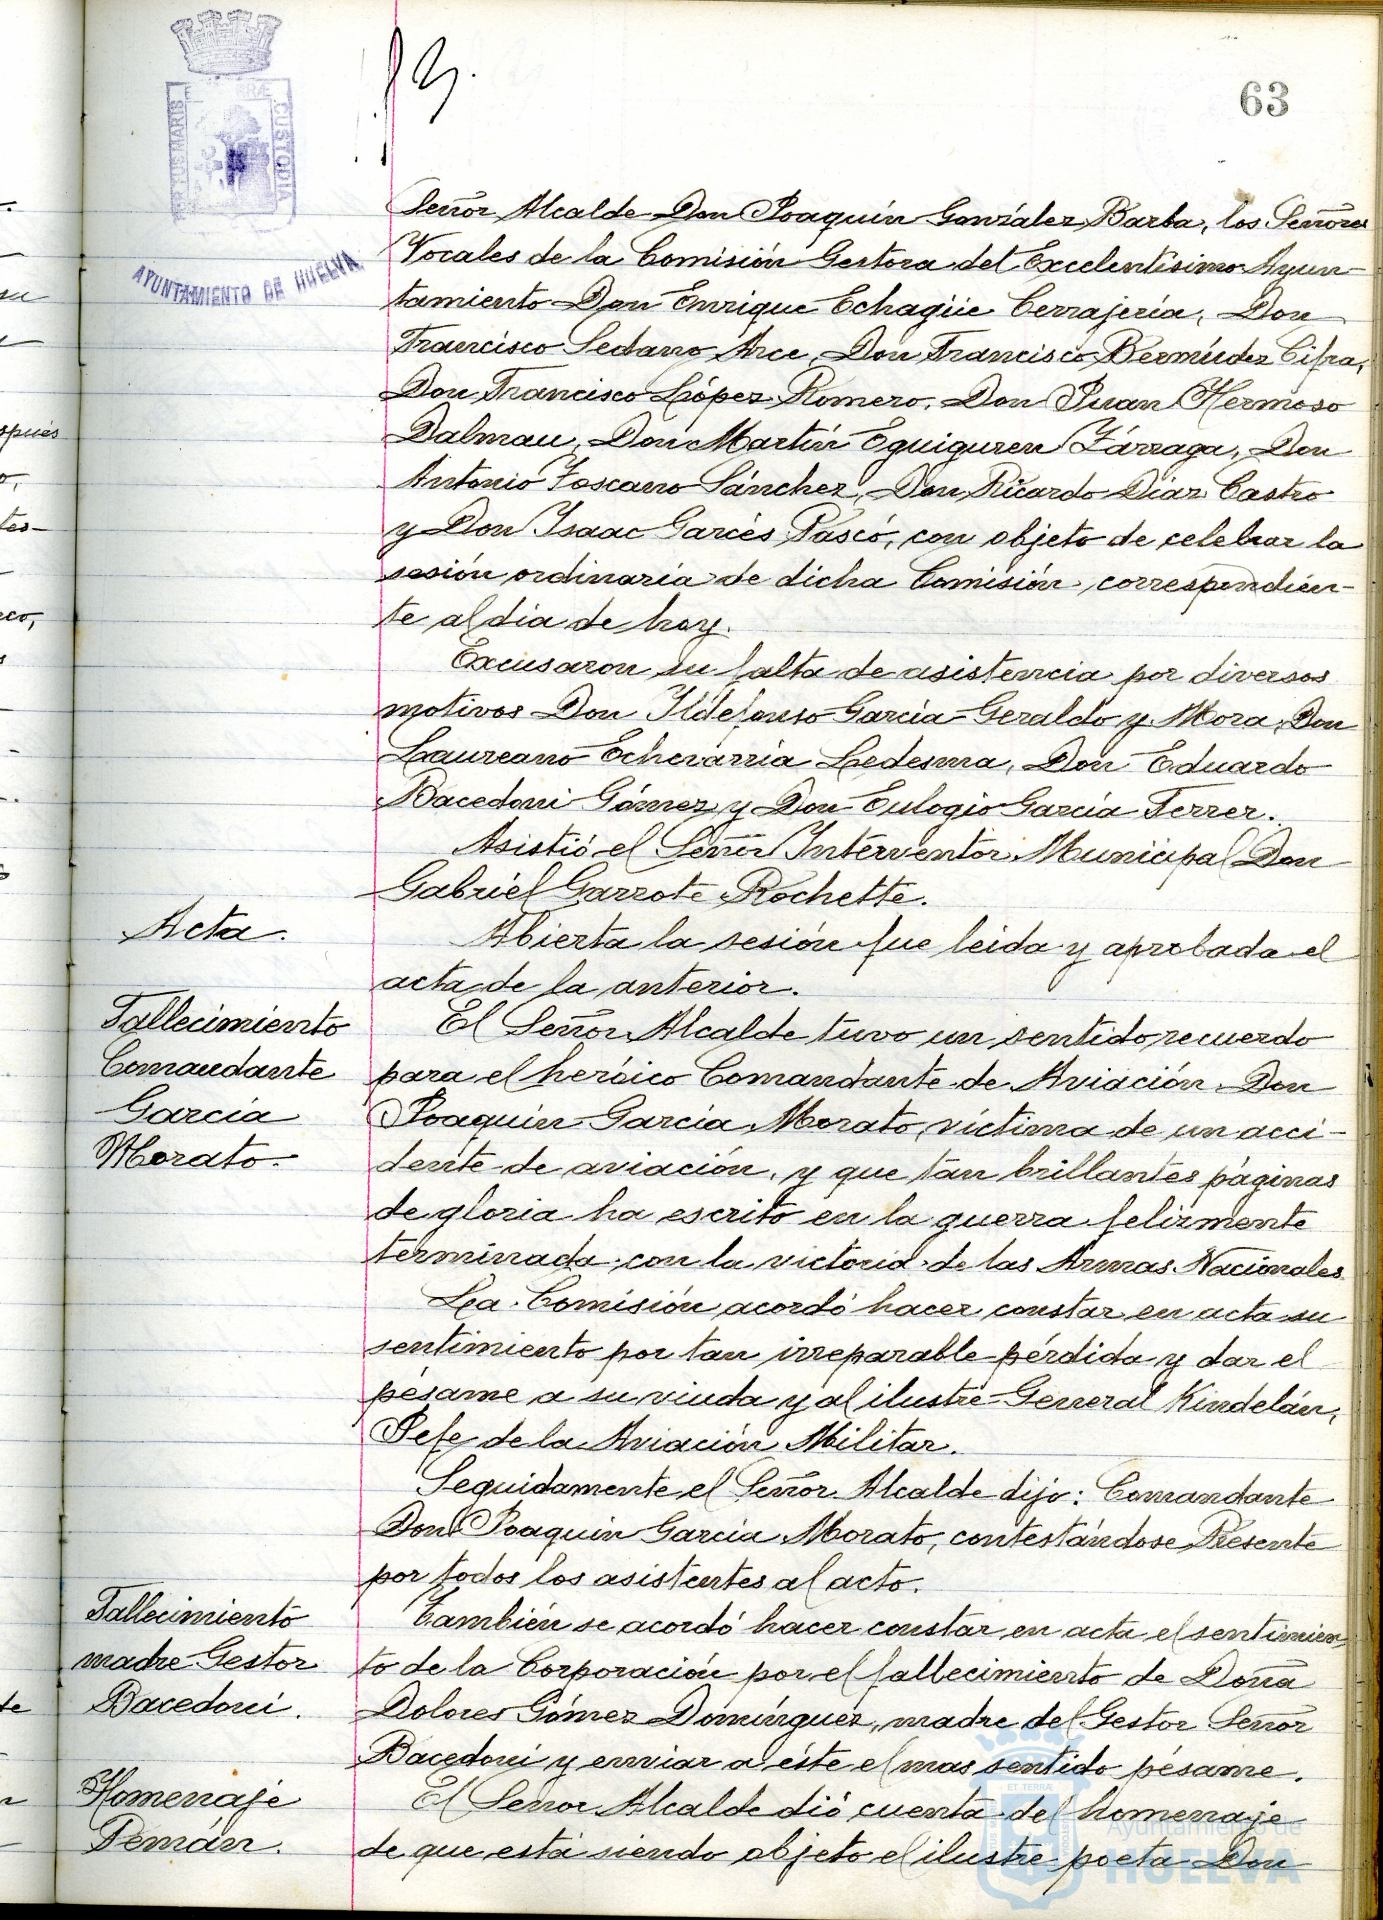 63
PORTUS MARIS
ET TERRÆ
CUSTODIA
AYUNTAMIENTO DE HUELVA
Señor Alcalde Don Joaquín González Barba, los Señores
Vocales de la Comisión Gestora del Excelentísimo Ayun-
tamiento Don Enrique Echagüe Cerrajería, Don
Francisco Sedano Arce, Don Francisco Bermúdez Cifra,
Don Francisco López Romero, Don Juan Hermoso
Dalmau, Don Martín Eguiguren Zárraga, Don
Antonio Toscano Sánchez, Don Ricardo Díaz Castro
y Don Isaac Garcés Pascó, con objeto de celebrar la
sesión ordinaria de dicha Comisión, correspondien-
te al dia de hoy.
Excusaron su falta de asistencia por diversos
motivos Don Ildefonso García-Geraldo y Mora, Don
Laureano Echevarría Ledesma, Don Eduardo
Bacedoni Gómez y Don Eulogio García Ferrer.
Asistió el Señor Interventor Municipal Don
Gabriel Garrote Rochette.
Acta.
Abierta la sesión fue leida y aprobada el
acta de la anterior.
Fallecimiento
Comandante
García
Morato.
El Señor Alcalde tuvo un sentido recuerdo
para el heróico Comandante de Aviación Don
Joaquin García Morato, víctima de un acci-
dente de aviación, y que tan brillantes páginas
de gloria ha escrito en la guerra felizmente
terminada con la victoria de las Armas Nacionales
La Comisión acordó hacer constar en acta su
sentimiento por tan irreparable pérdida y dar el
pésame a su viuda y al ilustre General Kindelán,
Jefe de la Aviación Militar.
Seguidamente el Señor Alcalde dijo: Comandante
Don Joaquín García Morato, contestándose Presente
por todos los asistentes al acto.
Fallecimiento
madre Gestor
Bacedoni.
También se acordó hacer constar en acta el sentimien
to de la Corporación por el fallecimiento de Doña
Dolores Gómez Domínguez, madre del Gestor Señor
Bacedoni y enviar a éste el mas sentido pésame.
Homenaje
Pemán.
El Señor Alcalde dió cuenta del homenaje
de que está siendo objeto el ilustre poeta Don
Ayuntamiento de
HUELVA